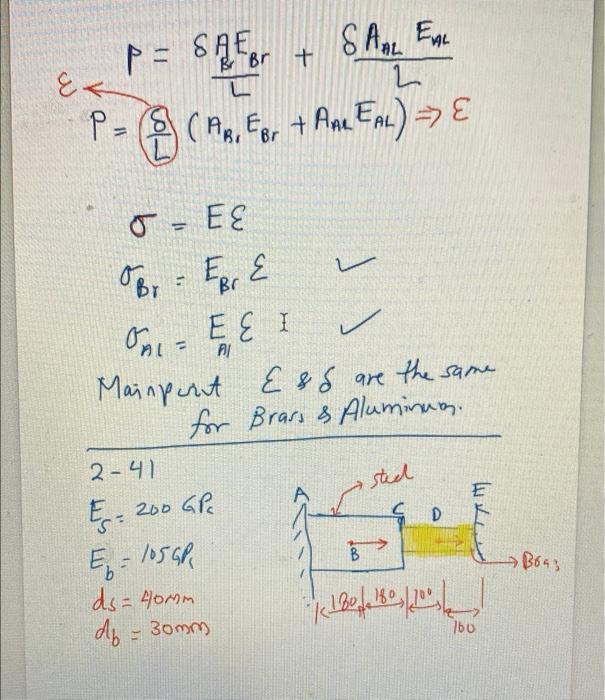 P = δ A_Br E_Br / L + δ A_AL E_AL / L
ε
P = (δ/L) (A_Br E_Br + A_AL E_AL) ⇒ ε
σ = E ε
σ_Br = E_Br ε ✓
σ_AL = E_Al ε ✓
ε & δ are the same
for Brass & Aluminum.
2-41
E_s = 200 GPa
E_b = 105 GPa
ds = 40mm
db = 30mm
steel
A
C
D
E
B
Brass
180 180 100
100